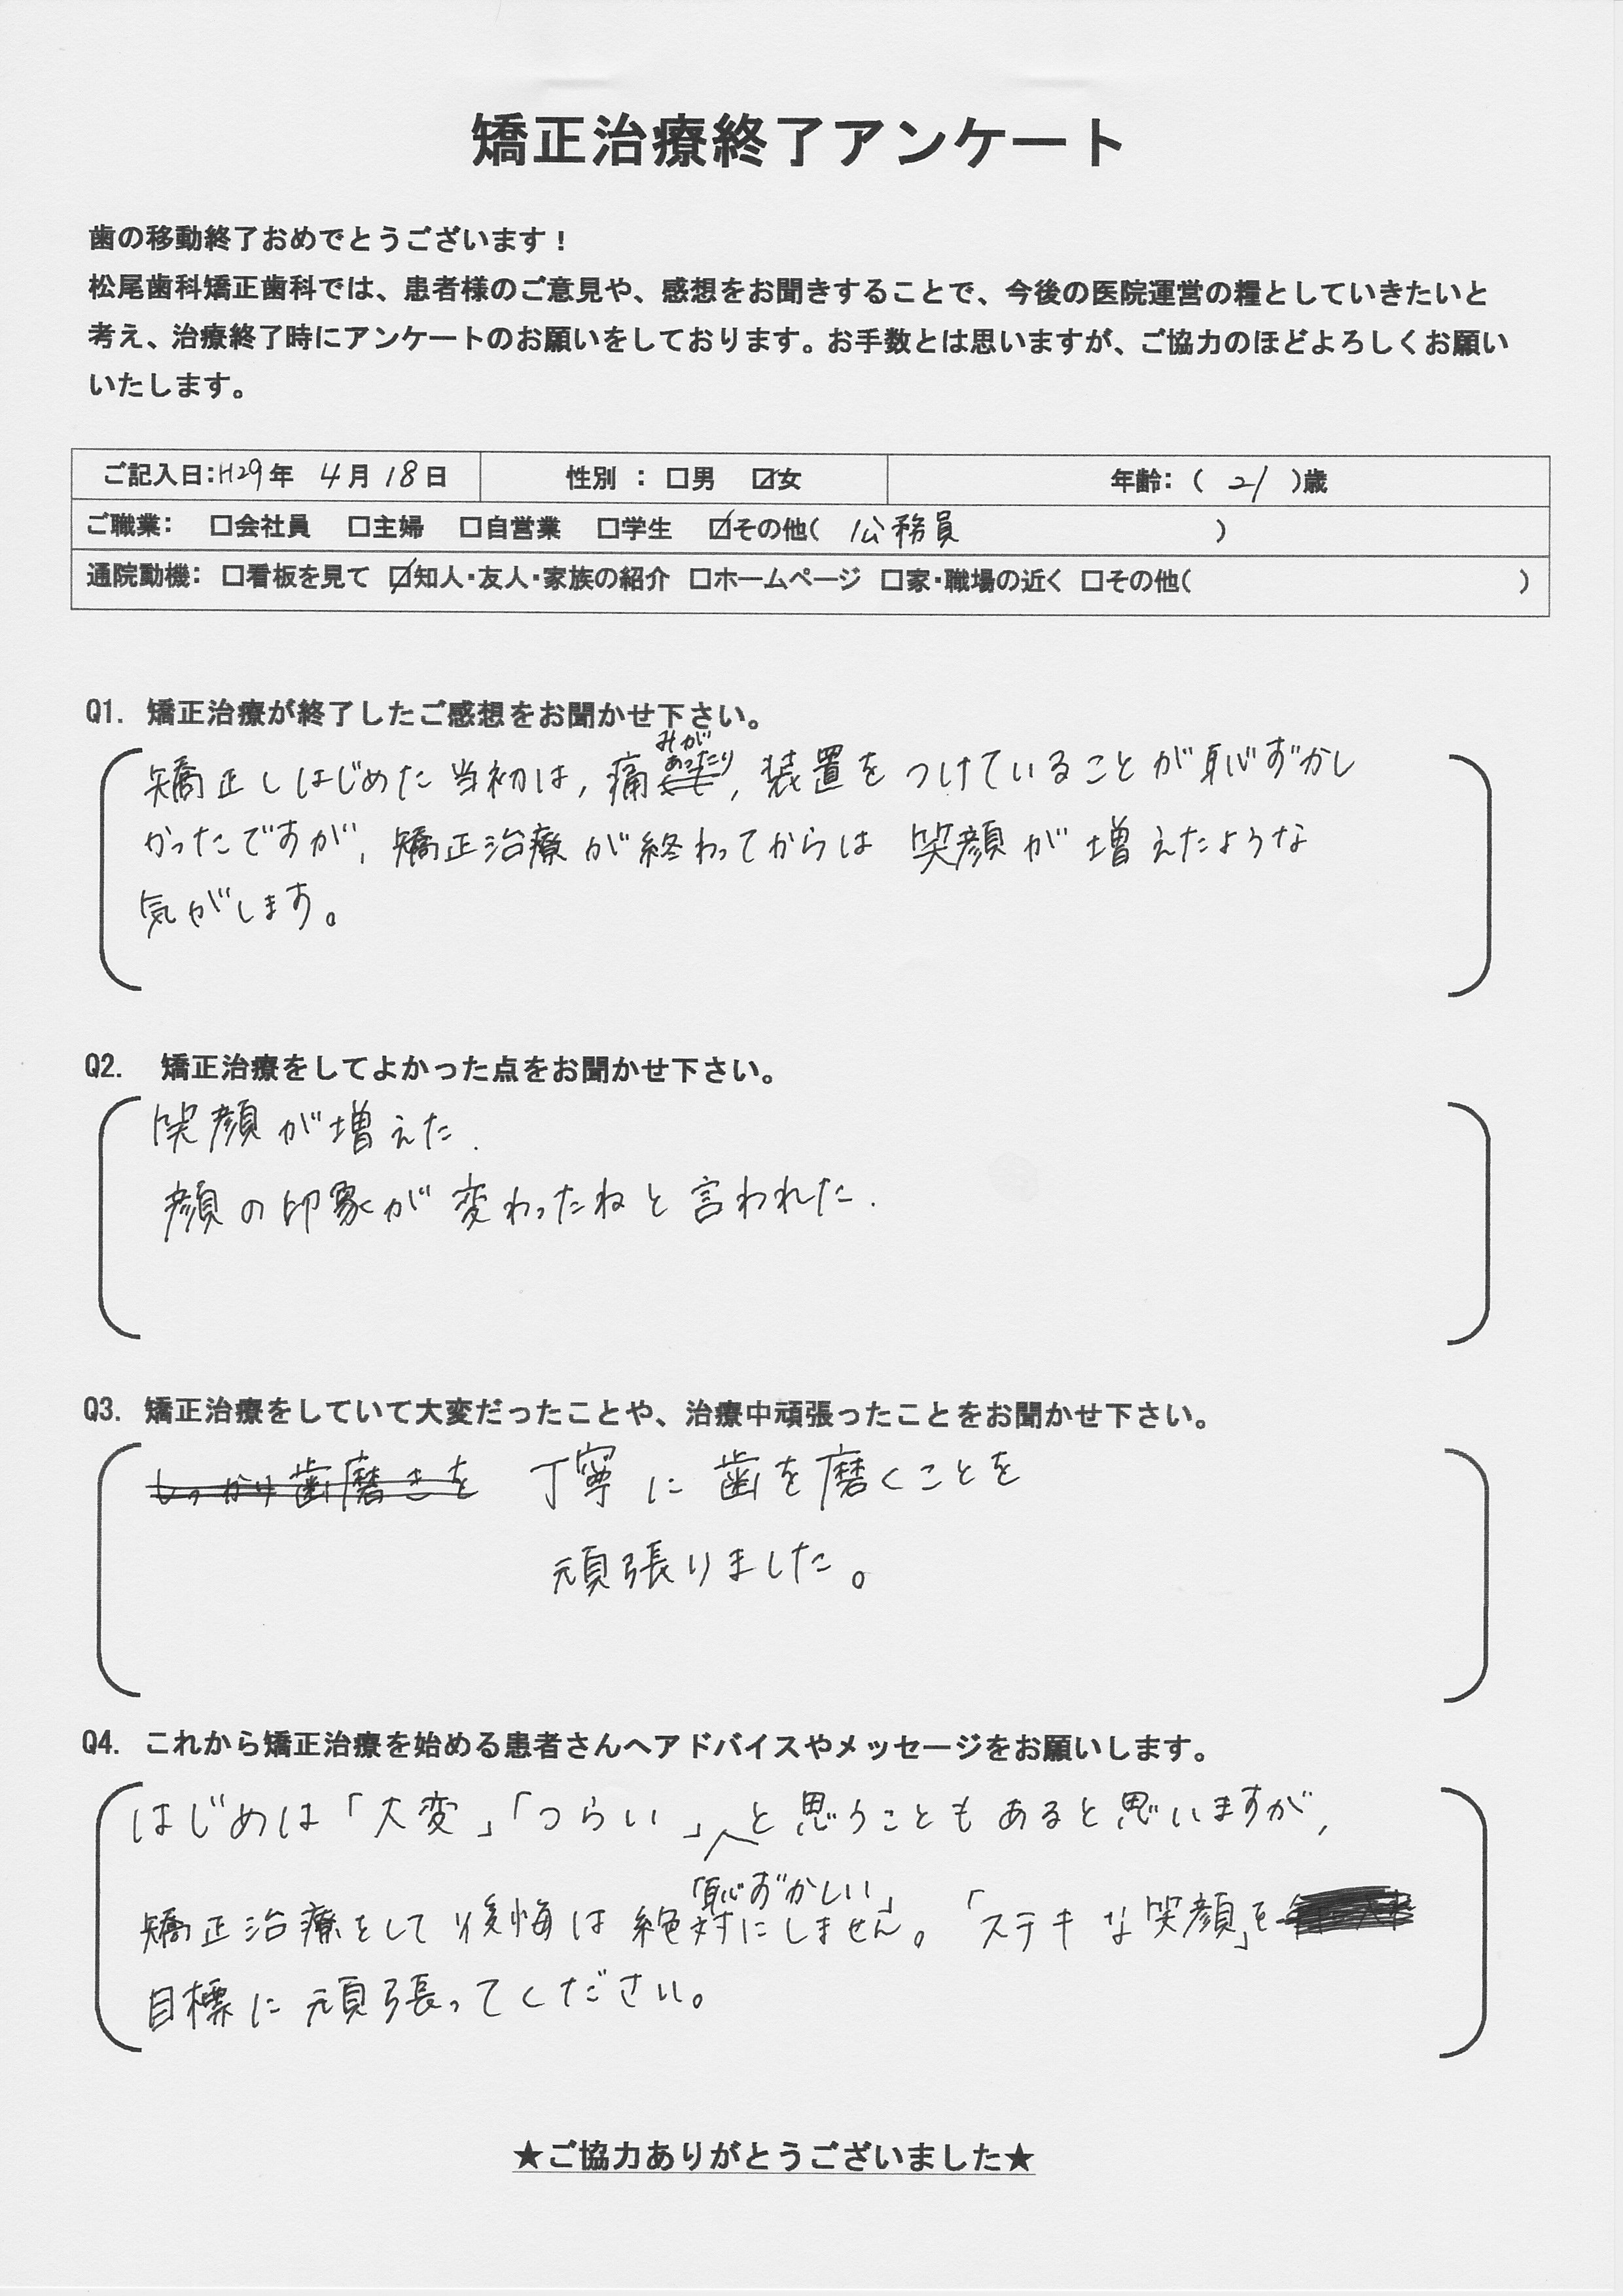 矯正治療終了アンケート
歯の移動終了おめでとうございます！
松尾歯科矯正歯科では、患者様のご意見や、感想をお聞きすることで、今後の医院運営の糧としていきたいと
考え、治療終了時にアンケートのお願いをしております。お手数とは思いますが、ご協力のほどよろしくお願い
いたします。
ご記入日：H29年 4月18日 性別 ： □男 ☑女 年齢：（ 21 ）歳
ご職業： □会社員 □主婦 □自営業 □学生 ☑その他（ 公務員 ）
通院動機： □看板を見て ☑知人・友人・家族の紹介 □ホームページ □家・職場の近く □その他（ ）
Q1. 矯正治療が終了したご感想をお聞かせ下さい。
矯正しはじめた当初は, 痛みがあったり, 装置をつけていることが恥ずかし
かったですが, 矯正治療が終わってからは 笑顔が増えたような
気がします。
Q2. 矯正治療をしてよかった点をお聞かせ下さい。
笑顔が増えた.
顔の印象が変わったねと言われた.
Q3. 矯正治療をしていて大変だったことや、治療中頑張ったことをお聞かせ下さい。
しっかり歯磨きを 丁寧に歯を磨くことを
頑張りました。
Q4. これから矯正治療を始める患者さんへアドバイスやメッセージをお願いします。
はじめは「大変」「つらい」と思うこともあると思いますが,
「恥ずかしい」
矯正治療をして後悔は絶対にしません。「ステキな笑顔」を
目標に頑張ってください。
★ご協力ありがとうございました★